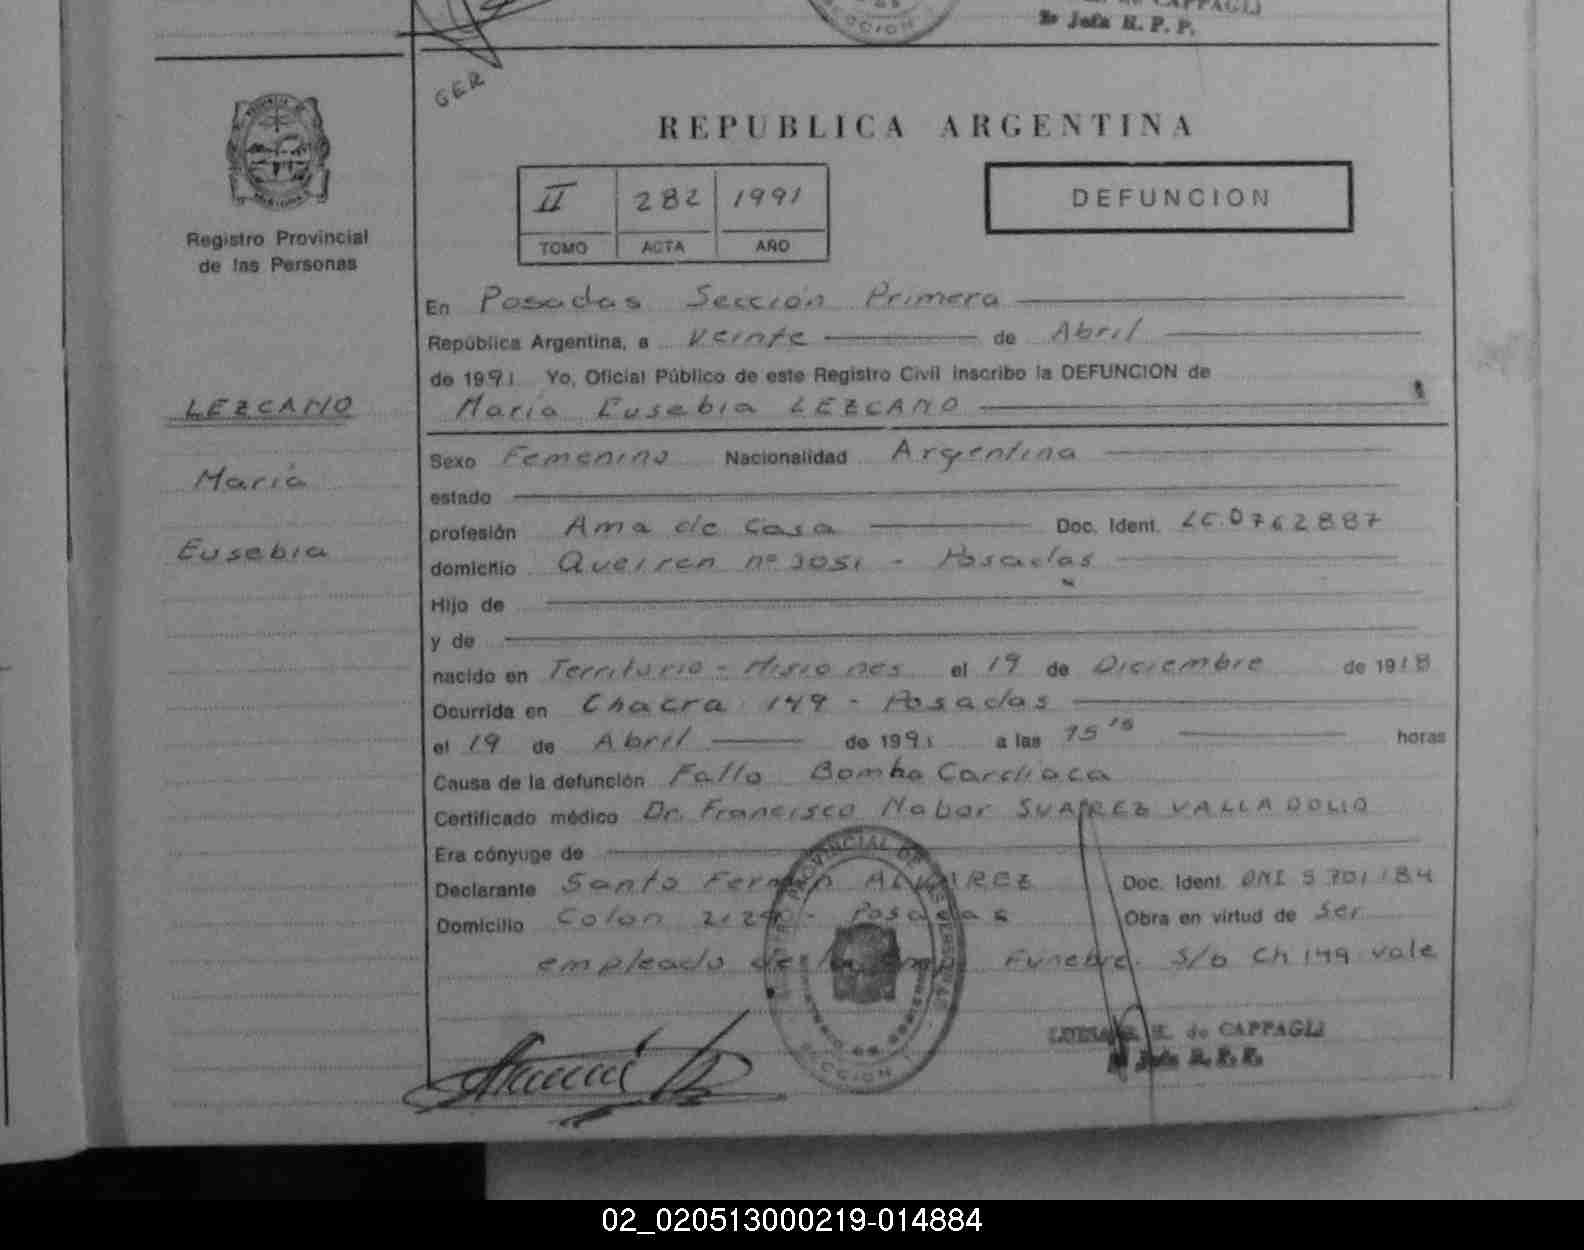 CCION
de CAPPAGLI
2º Jefa R. P. P.
GER
REPUBLICA ARGENTINA
II 282 1991
TOMO ACTA AÑO
DEFUNCION
Registro Provincial
de las Personas
LEZCANO
Maria
Eusebia
En Posadas Sección Primera
República Argentina, a Veinte de Abril
de 1991 Yo, Oficial Público de este Registro Civil inscribo la DEFUNCION de
Maria Eusebia LEZCANO
Sexo Femenino Nacionalidad Argentina
estado
profesión Ama de Casa Doc. Ident. LC.0762887
domicilio Queiren nº 3051 - Posadas
Hijo de
y de
nacido en Territorio - Misiones el 19 de Diciembre de 1918
Ocurrida en Chacra 149 - Posadas
el 19 de Abril de 1991 a las 15 15 horas
Causa de la defunción Fallo Bomba Cardiaca
Certificado médico Dr. Francisco Nabor SUAREZ VALLADOLID
Era cónyuge de
Declarante Santo Fermin ALVAREZ Doc. Ident. DNI 5 701 184
Domicilio Colon - Posadas Obra en virtud de Ser
empleado de la Funebre. S/b Ch 149 vale
REGISTRO PROVINCIAL DE LAS PERSONAS
SECCION
de CAPPAGLI
Jefa R. P. P.
02_020513000219-014884